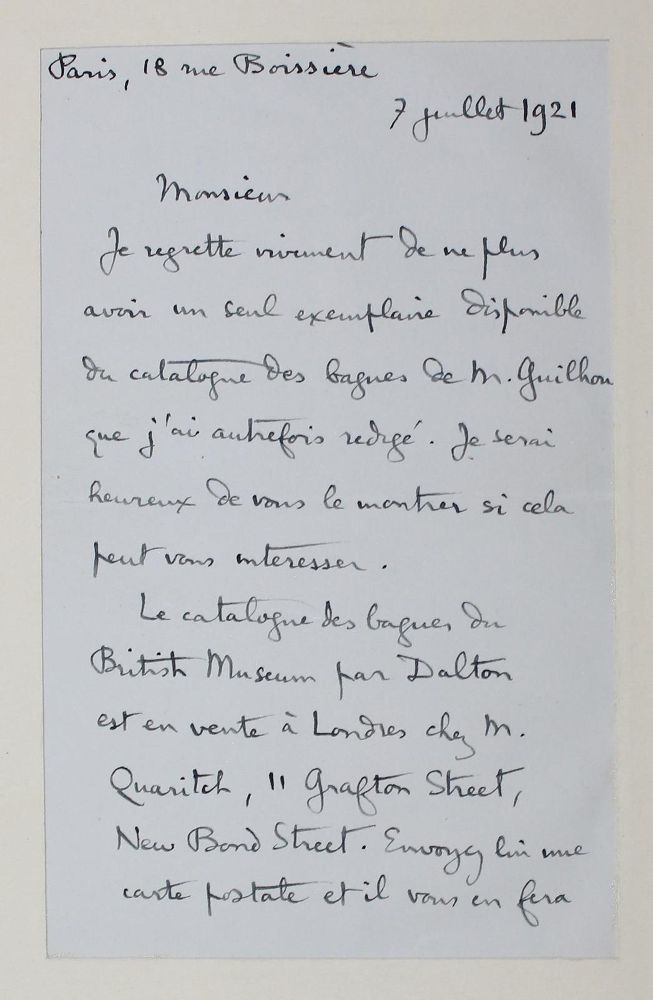 Paris, 18 rue Boissière
7 juillet 1921
Monsieur
Je regrette vivement de ne plus
avoir un seul exemplaire disponible
du catalogue des bagues de M. Guilhou
que j'ai autrefois redigé. Je serai
heureux de vous le montrer si cela
peut vous interesser.
Le catalogue des bagues du
British Museum par Dalton
est en vente à Londres chez M.
Quaritch, 11 Grafton Street,
New Bond Street. Envoyez lui une
carte postale et il vous en fera